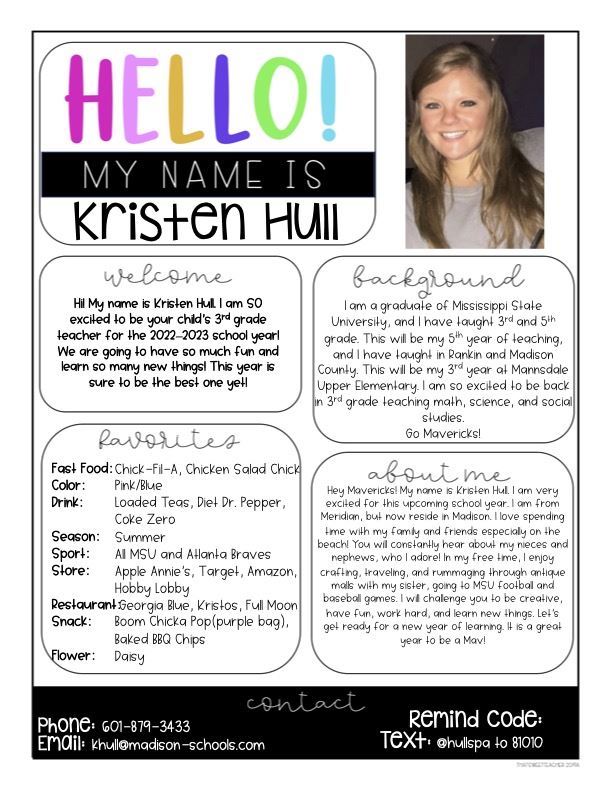 HELLO!
MY NAME IS
Kristen Hull
welcome
Hi! My name is Kristen Hull. I am SO
excited to be your child's 3rd grade
teacher for the 2022-2023 school year!
We are going to have so much fun and
learn so many new things! This year is
sure to be the best one yet!
background
I am a graduate of Mississippi State
University, and I have taught 3rd and 5th
grade. This will be my 5th year of teaching,
and I have taught in Rankin and Madison
County. This will be my 3rd year at Mannsdale
Upper Elementary. I am so excited to be back
in 3rd grade teaching math, science, and social
studies.
Go Mavericks!
favorites
Fast Food: Chick-Fil-A, Chicken Salad Chick
Color: Pink/Blue
Drink: Loaded Teas, Diet Dr. Pepper,
Coke Zero
Season: Summer
Sport: All MSU and Atlanta Braves
Store: Apple Annie's, Target, Amazon,
Hobby Lobby
Restaurant: Georgia Blue, Kristos, Full Moon
Snack: Boom Chicka Pop(purple bag),
Baked BBQ Chips
Flower: Daisy
about me
Hey Mavericks! My name is Kristen Hull. I am very
excited for this upcoming school year. I am from
Meridian, but now reside in Madison. I love spending
time with my family and friends especially on the
beach! You will constantly hear about my nieces and
nephews, who I adore! In my free time, I enjoy
crafting, traveling, and rummaging through antique
malls with my sister, going to MSU football and
baseball games. I will challenge you to be creative,
have fun, work hard, and learn new things. Let's
get ready for a new year of learning. It is a great
year to be a Mav!
contact
Phone: 601-879-3433
Email: khull@madison-schools.com
Remind Code:
Text: @hullspa to 81010